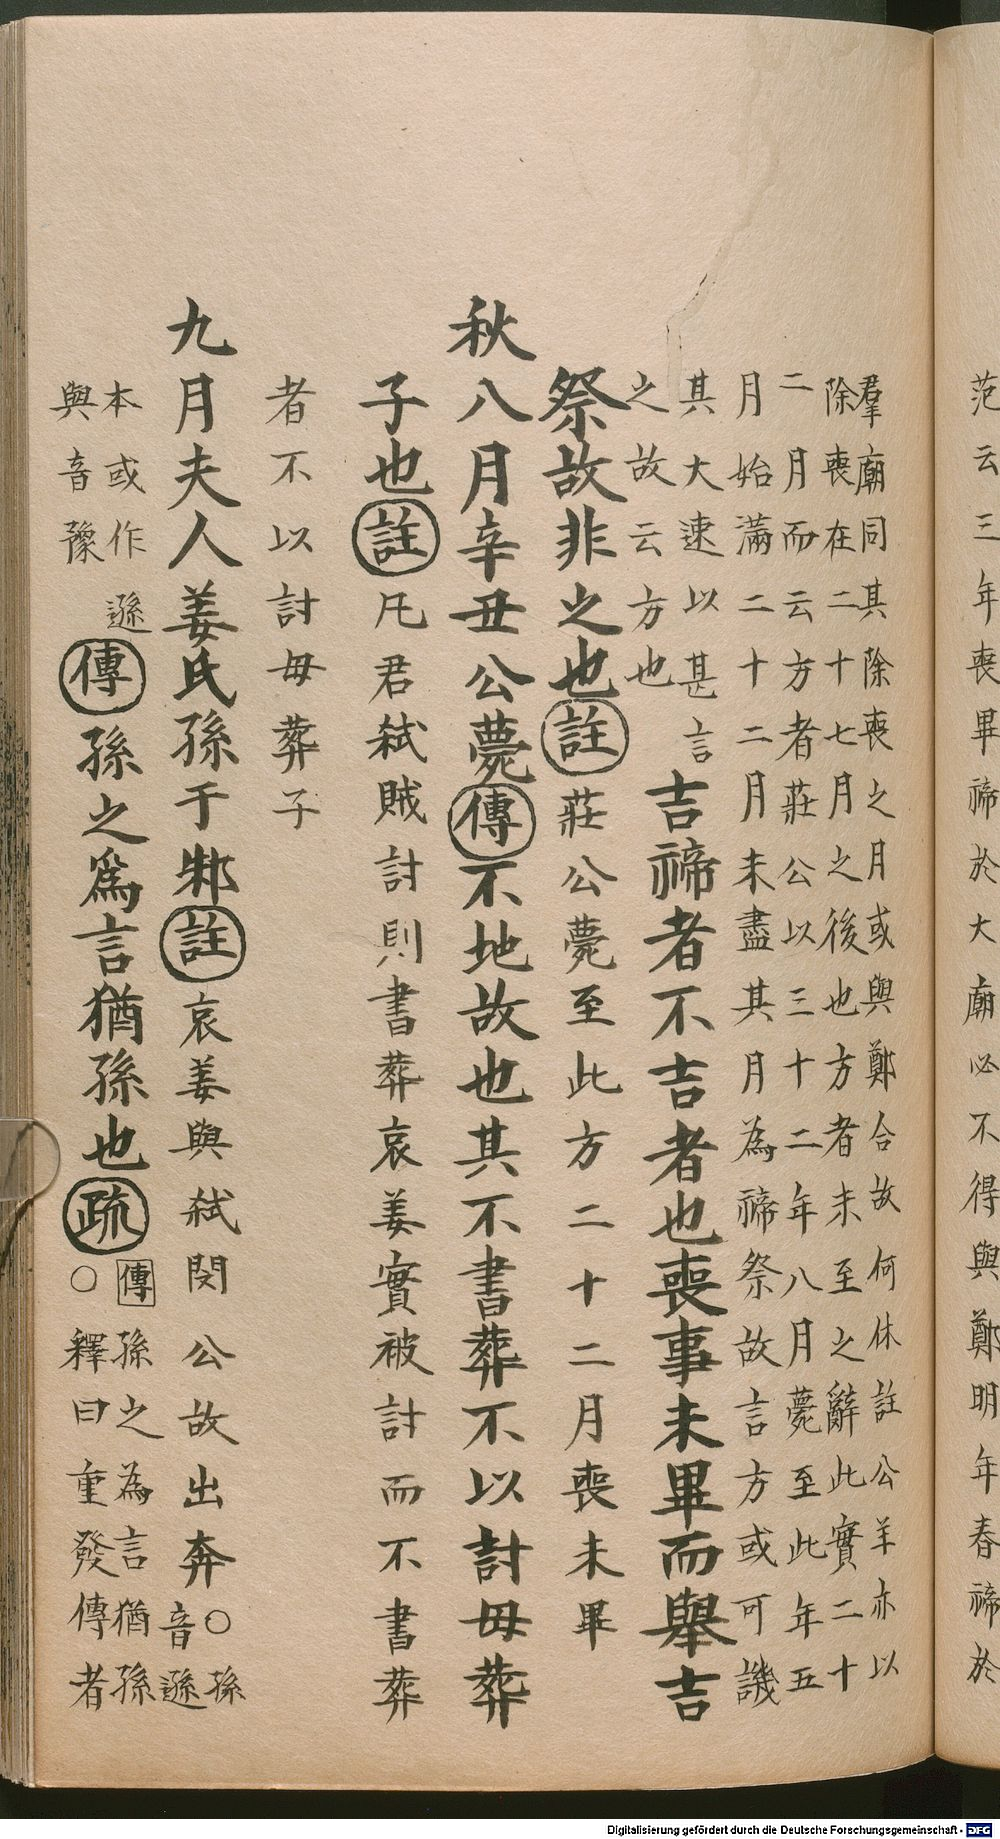 范云三年喪畢禘於大廟必不得與鄭明年春禘於
羣廟同其除喪之月或與鄭合故何休註公羊亦以
除喪在二十七月之後也方者未至之辭此實二十
二月而云方者莊公以三十二年八月薨至此年五
月始滿二十二月未盡其月為禘祭故言方或可譏
其大速以甚言
之故云方也
吉禘者不吉者也喪事未畢而舉吉
祭故非之也註莊公薨至此方二十二月喪未畢
秋八月辛丑公薨傳不地故也其不書葬不以討母葬
子也註凡君弒賊討則書葬哀姜實被討而不書葬
者不以討母葬子
九月夫人姜氏孫于邾註哀姜與弒閔公故出奔
○孫
音遜
本或作遜
與音豫
傳孫之爲言猶孫也疏
傳孫之為言猶孫
○釋曰重發傳者
Digitalisierung gefördert durch die Deutsche Forschungsgemeinschaft - DFG